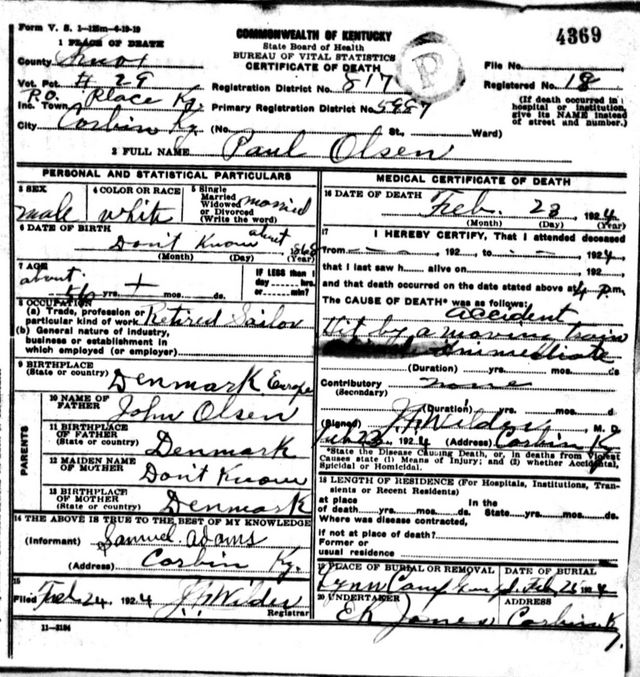 Form V. S. 1-125m-6-19-19
COMMONWEALTH OF KENTUCKY
State Board of Health
BUREAU OF VITAL STATISTICS
CERTIFICATE OF DEATH
4369
P
1 PLACE OF DEATH
County Knox
Vot. Pct. # 29
Registration District No. 817
File No.
Registered No. 18
R.O. Place Ky.
Inc. Town
Primary Registration District No. 5987
(If death occurred in a hospital or institution, give its NAME instead of street and number.)
City Corbin Ky. (No. St., Ward)
2 FULL NAME Paul Olsen
PERSONAL AND STATISTICAL PARTICULARS
3 SEX
male
4 COLOR OR RACE
white
5 Single
Married
Widowed
or Divorced
(Write the word)
married
6 DATE OF BIRTH
Don't Know about 1868
(Month) (Day) (Year)
7 AGE
about
yrs. mos. ds.
IF LESS than 1
day hrs.
or min?
8 OCCUPATION
(a) Trade, profession or
particular kind of work Retired Sailor
(b) General nature of industry,
business or establishment in
which employed (or employer)
9 BIRTHPLACE
(State or country) Denmark Europe
PARENTS
10 NAME OF
FATHER John Olsen
11 BIRTHPLACE
OF FATHER
(State or country) Denmark
12 MAIDEN NAME
OF MOTHER Don't Know
13 BIRTHPLACE
OF MOTHER
(State or country) Denmark
14 THE ABOVE IS TRUE TO THE BEST OF MY KNOWLEDGE
(Informant) Samuel Adams
(Address) Corbin Ky.
15
Filed Feb 24, 1924 J.H. Wilder
Registrar
11-3184
MEDICAL CERTIFICATE OF DEATH
16 DATE OF DEATH
Feb. 23, 1924
(Month) (Day) (Year)
17 I HEREBY CERTIFY, That I attended deceased
from 192 to 1924,
that I last saw h alive on 192
and that death occurred on the date stated above at 4 P.m.
The CAUSE OF DEATH* was as follows:
accident
Hit by a moving train
immediate
(Duration) yrs. mos. ds
Contributory none
(Secondary)
(Duration) yrs. mos. d
(Signed) J.H. Wilder, M. D.
Feb 23, 1924 (Address) Corbin K
*State the Disease Causing Death, or, in deaths from Violent
Causes state (1) Means of Injury; and (2) whether Accidental,
Suicidal or Homicidal.
18 LENGTH OF RESIDENCE (For Hospitals, Institutions, Tran-
sients or Recent Residents)
at place In the
of death yrs. mos. ds. State yrs. mos. ds.
Where was disease contracted,
if not at place of death?
Former or
usual residence
19 PLACE OF BURIAL OR REMOVAL DATE OF BURIAL
Lynn Camp Feb 25 1924
20 UNDERTAKER ADDRESS
Jones Corbin Ky.